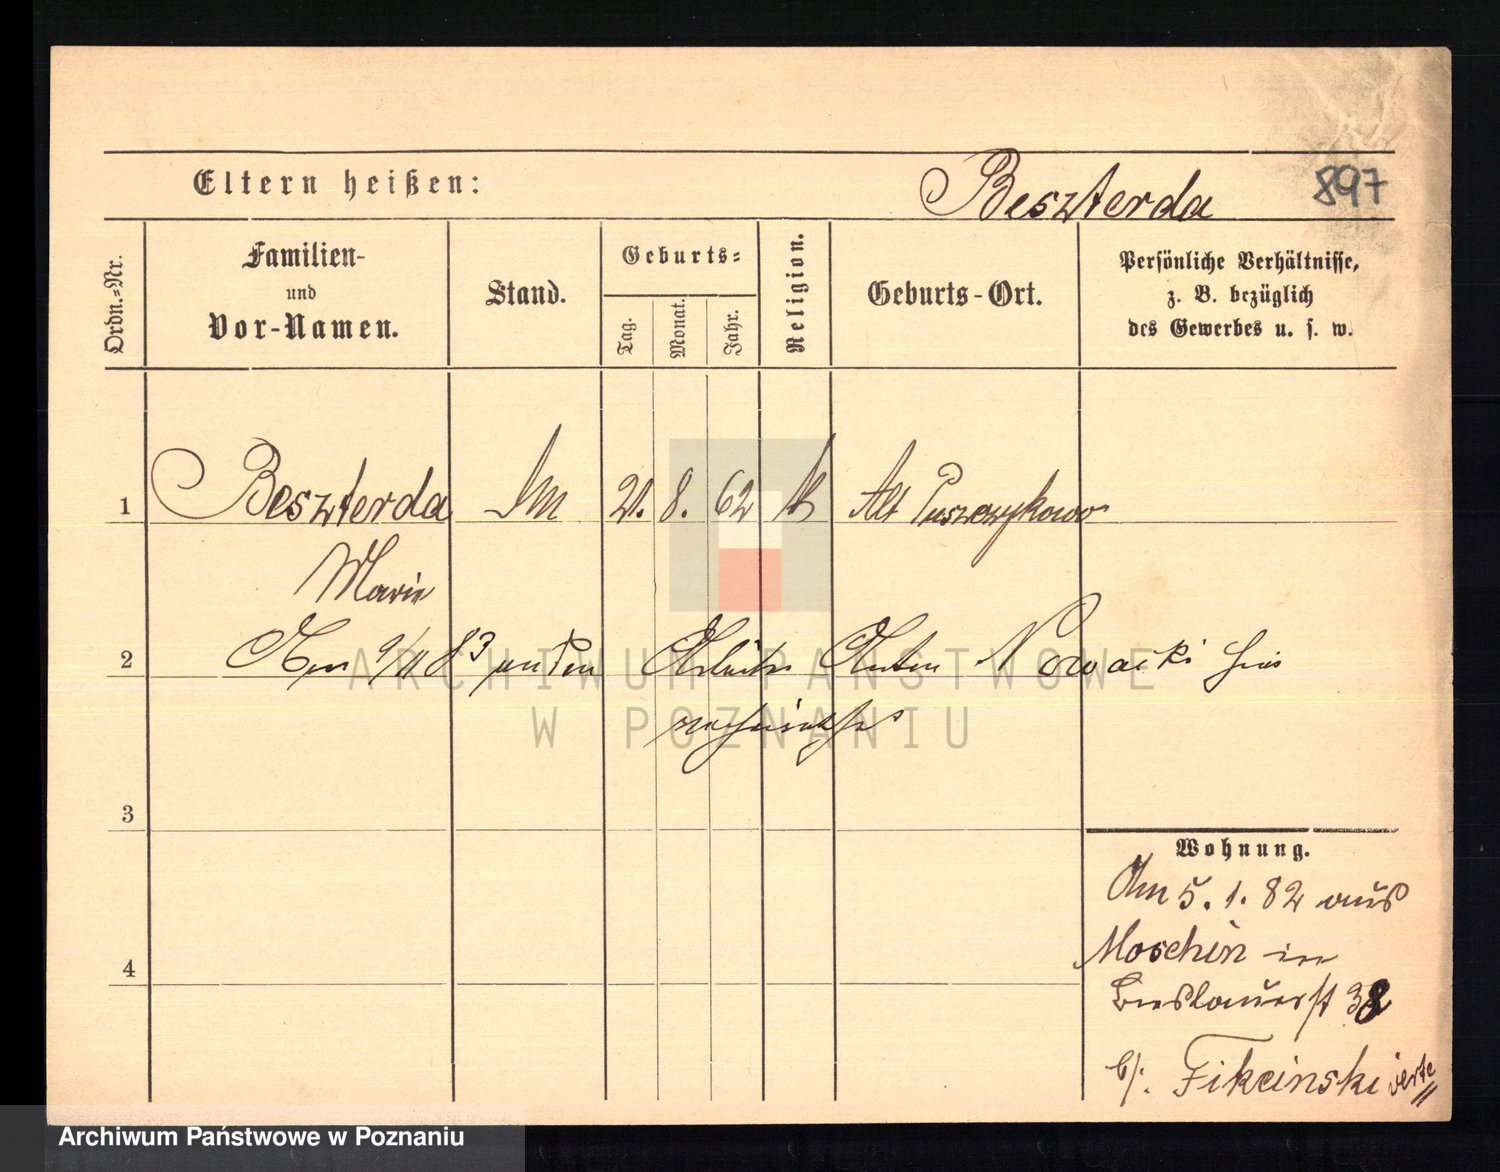 Eltern heißen:
Beszterda
897
Ordn.=Nr.
Familien-
und
Vor-Namen.
Stand.
Geburts=
Tag.
Monat.
Jahr.
Religion.
Geburts-Ort.
Persönliche Verhältnisse,
z. B. bezüglich
des Gewerbes u. s. w.
1
Beszterda
21. 8. 62 k
Alt Puszczykowo
Marie
2
Am 9/11 83 an den Arbeiter Anton Nowacki hier
3
4
Wohnung.
Am 5. 1. 82 aus
Moschin in
Breslauerst 38
b/: Fikcinski verte
ARCHIWUM PAŃSTWOWE
W POZNANIU
Archiwum Państwowe w Poznaniu